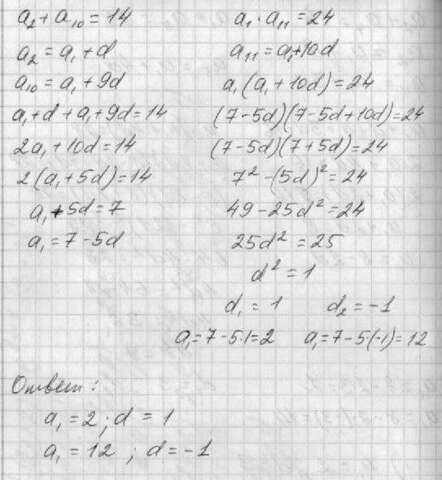 a₂ + a₁₀ = 14
a₂ = a₁ + d
a₁₀ = a₁ + 9d
a₁ + d + a₁ + 9d = 14
2a₁ + 10d = 14
2(a₁ + 5d) = 14
a₁ + 5d = 7
a₁ = 7 - 5d
a₁ · a₁₁ = 24
a₁₁ = a₁ + 10d
a₁(a₁ + 10d) = 24
(7 - 5d)(7 - 5d + 10d) = 24
(7 - 5d)(7 + 5d) = 24
7² - (5d)² = 24
49 - 25d² = 24
25d² = 25
d² = 1
d₁ = 1 d₂ = -1
a₁ = 7 - 5·1 = 2 a₁ = 7 - 5(-1) = 12
Ответ:
a₁ = 2 ; d = 1
a₁ = 12 ; d = -1